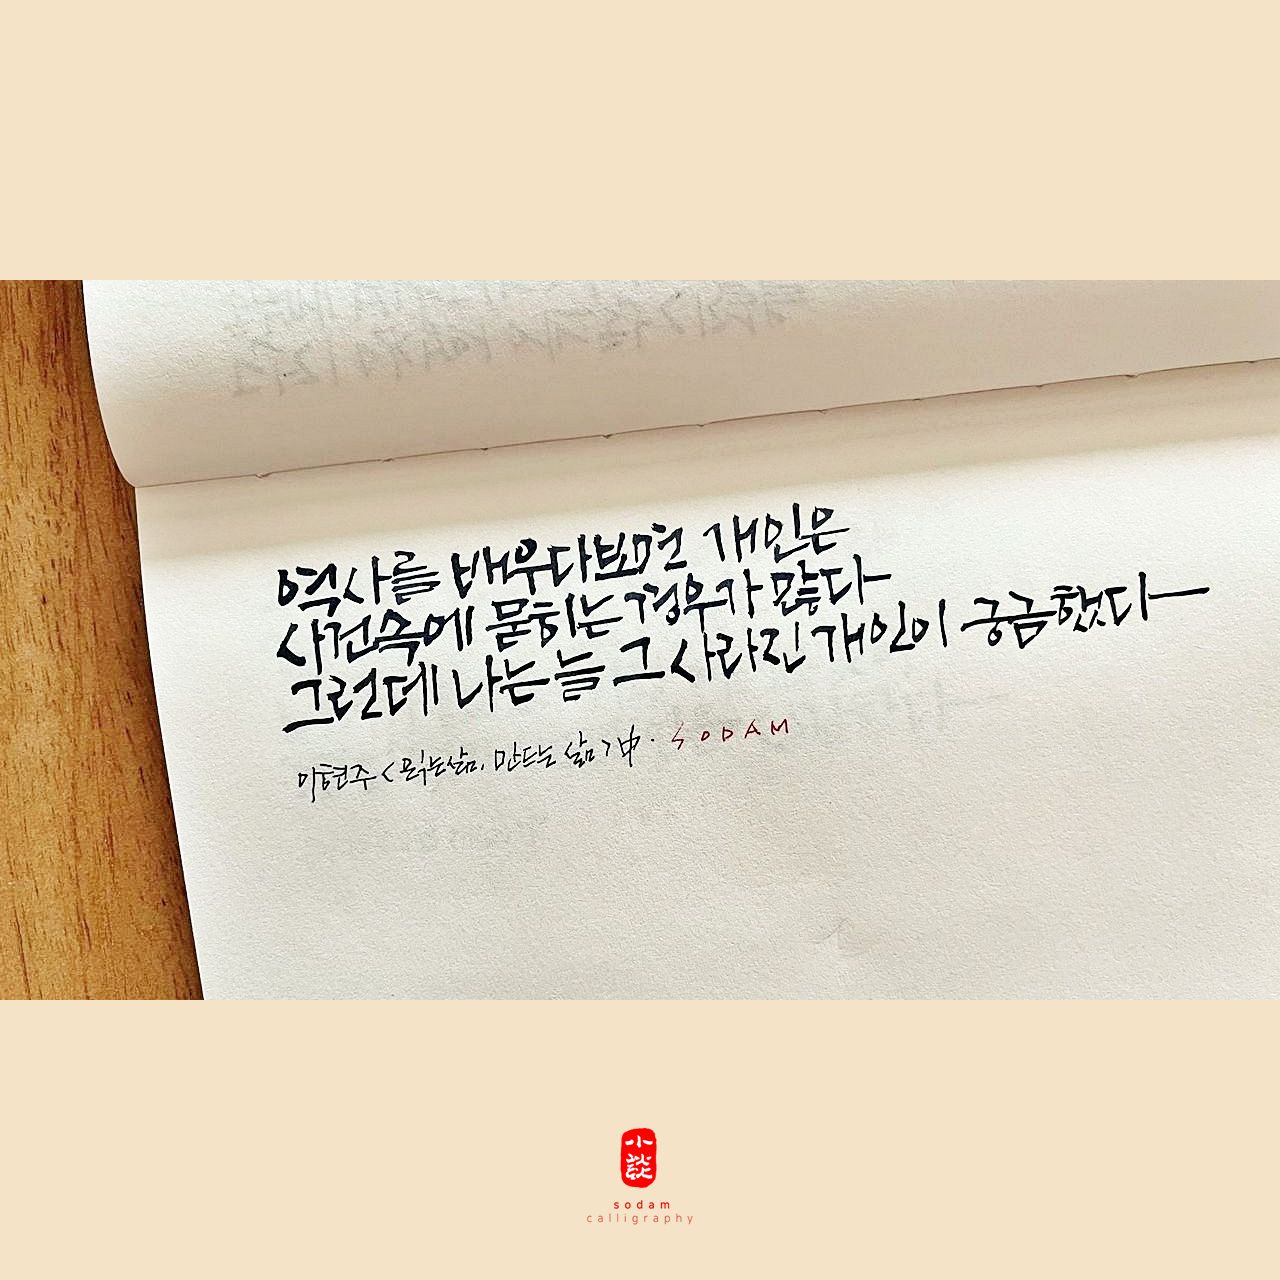 역사를 배우다보면 개인은
사건속에 묻히는 경우가 많다
그런데 나는 늘 그 사라진 개인이 궁금했다
이현주 <읽는삶, 만드는 삶>中. SODAM
小談
sodam
calligraphy